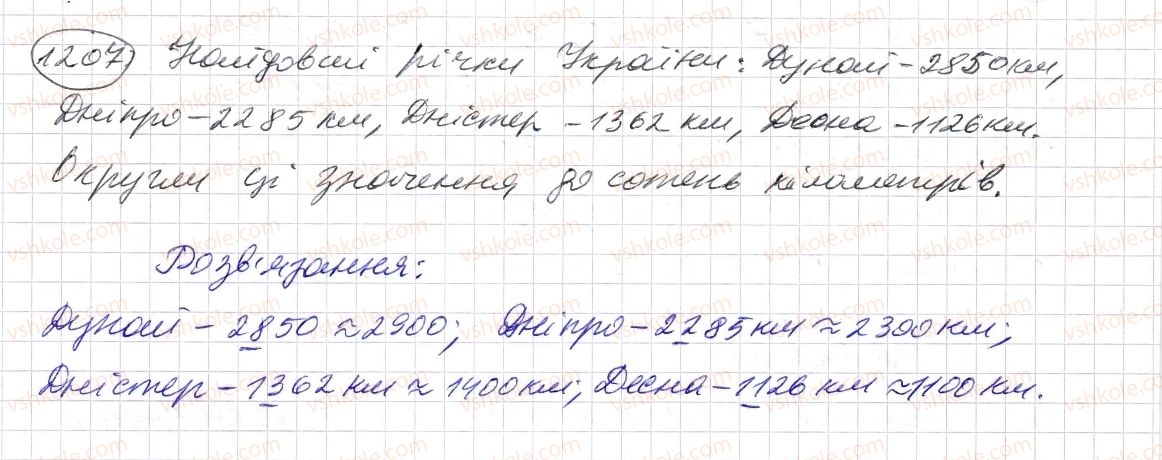 1207 Найдовші річки України: Дунай – 2850 км,
Дніпро – 2285 км, Дністер – 1362 км, Десна – 1126 км.
Округли ці значення до сотень кілометрів.
Розв'язання:
Дунай – 2850 ≈ 2900; Дніпро – 2285 км ≈ 2300 км;
Дністер – 1362 км ≈ 1400 км; Десна – 1126 км ≈ 1100 км.